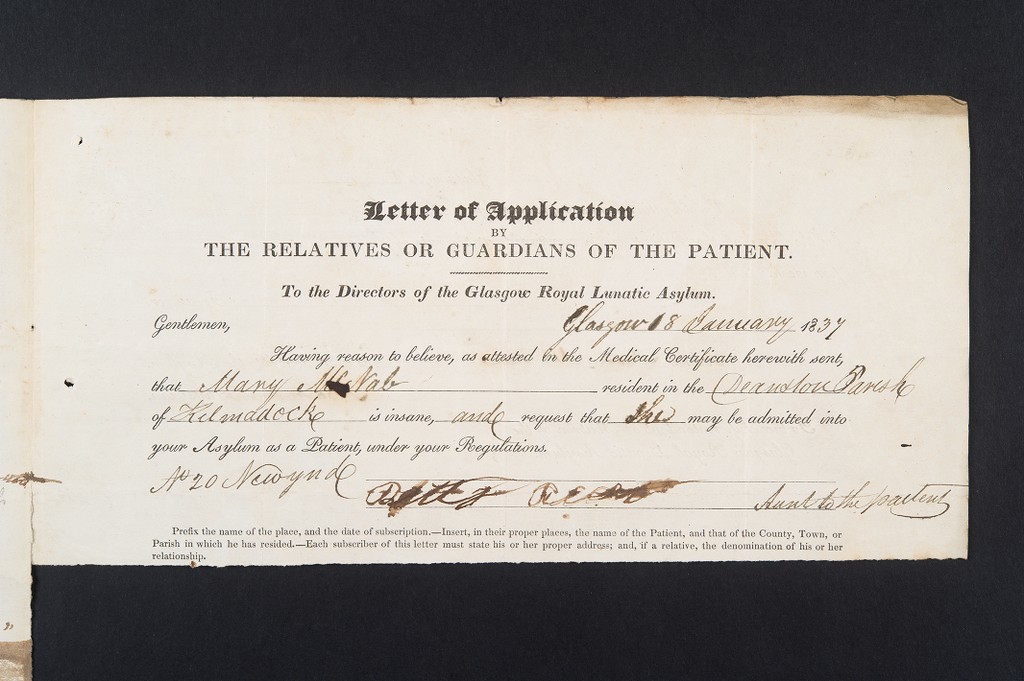 Letter of Application
BY
THE RELATIVES OR GUARDIANS OF THE PATIENT.
To the Directors of the Glasgow Royal Lunatic Asylum.
Gentlemen, Glasgow 18 January 1837
Having reason to believe, as attested in the Medical Certificate herewith sent,
that Mary McNab resident in the Deanston Parish
of Kilmadock is insane, and request that She may be admitted into
your Asylum as a Patient, under your Regulations.
No 20 Newynd
Betty Aunt to the paitent
Prefix the name of the place, and the date of subscription.—Insert, in their proper places, the name of the Patient, and that of the County, Town, or
Parish in which he has resided.—Each subscriber of this letter must state his or her proper address; and, if a relative, the denomination of his or her
relationship.